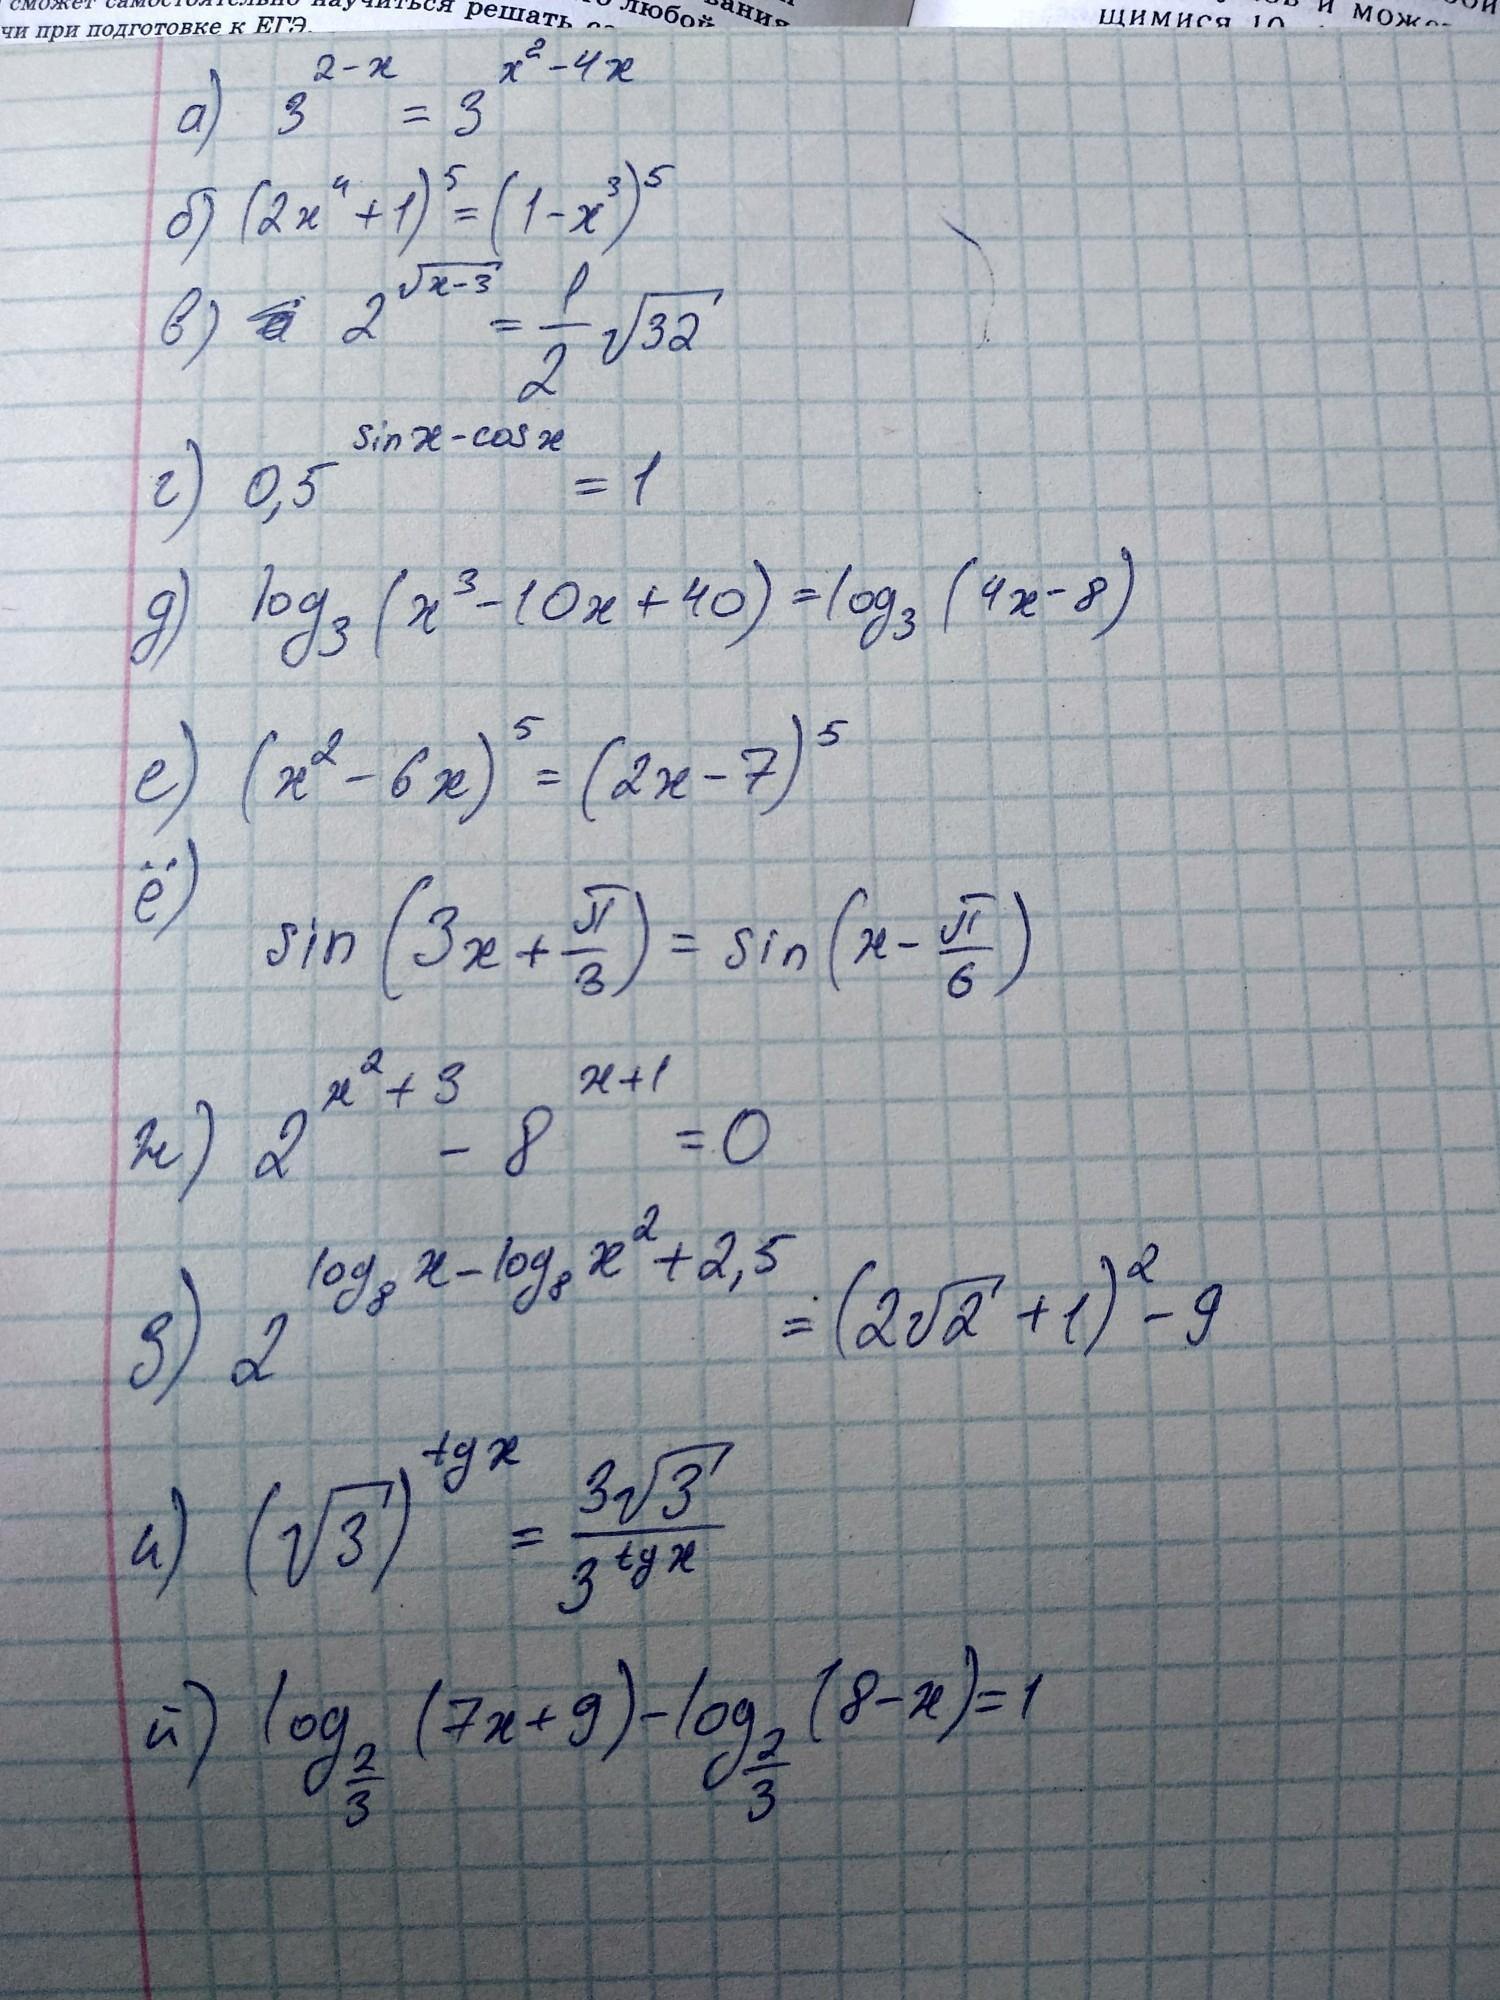 сможет самостоятельно научиться решать
любой
чи при подготовке к ЕГЭ.
и може
щимися 10
а) 3^(2-x) = 3^(x²-4x)
б) (2x⁴+1)⁵ = (1-x³)⁵
в) 2^(√(x-3)) = 1/2 √32
г) 0,5^(sin x - cos x) = 1
д) log₃ (x³-10x+40) = log₃ (4x-8)
е) (x²-6x)⁵ = (2x-7)⁵
ё) sin (3x+π/3) = sin (x-π/6)
ж) 2^(x²+3) - 8^(x+1) = 0
з) 2^(log₈ x - log₈ x² + 2,5) = (2√2+1)² - 9
и) (√3)^(tg x) = 3√3/3^(tg x)
й) log_(2/3) (7x+9) - log_(2/3) (8-x) = 1